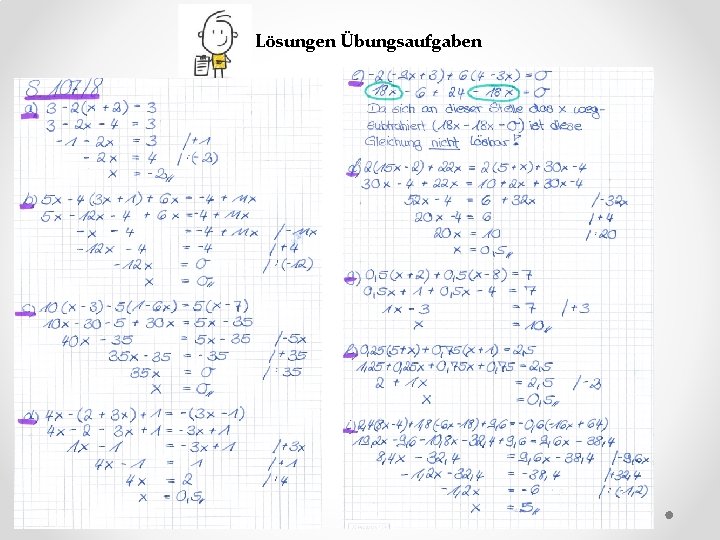 Lösungen Übungsaufgaben
S. 107/8
a) 3 - 2(x + 2) = 3
3 - 2x - 4 = 3
-1 - 2x = 3 /+1
- 2x = 4 /:(-2)
x = -2
b) 5x - 4(3x+1) + 6x = -4 + 11x
5x - 12x - 4 + 6x = -4 + 11x
-x - 4 = -4 + 11x /-11x
-12x - 4 = -4 /+4
-12x = 0 /:(-12)
x = 0
c) 10(x-3) - 5(1-6x) = 5(x-7)
10x - 30 - 5 + 30x = 5x - 35
40x - 35 = 5x - 35 /-5x
35x - 35 = -35 /+35
35x = 0 /:35
x = 0
d) 4x - (2 + 3x) + 1 = -(3x - 1)
4x - 2 - 3x + 1 = -3x + 1
1x - 1 = -3x + 1 /+3x
4x - 1 = 1 /+1
4x = 2 /:4
x = 0,5
e) -2(-2x+3) + 6(4-3x) = 0
18x - 6 + 24 - 18x = 0
Da sich an dieser Stelle das x weg-
subtrahiert (18x - 18x = 0) ist diese
Gleichung nicht lösbar!
2(15x-2) + 22x = 2(5+x) + 30x-4
30x - 4 + 22x = 10 + 2x + 30x - 4
52x - 4 = 6 + 32x /-32x
20x - 4 = 6 /+4
20x = 10 /:20
x = 0,5
g) 0,5(x+2) + 0,5(x-8) = 7
0,5x + 1 + 0,5x - 4 = 7
1x - 3 = 7 /+3
x = 10
h) 0,25(5+x) + 0,75(x+1) = 2,5
1,25 + 0,25x + 0,75x + 0,75 = 2,5
2 + 1x = 2,5 /-2
x = 0,5
i) 2,4(8x-4) + 1,8(-6x-18) + 9,6 = -0,6(-16x + 64)
19,2x - 9,6 - 10,8x - 32,4 + 9,6 = 9,6x - 38,4
8,4x - 32,4 = 9,6x - 38,4 /-9,6x
-1,2x - 32,4 = -38,4 /+32,4
-1,2x = -6 /:(-1,2)
x = 5